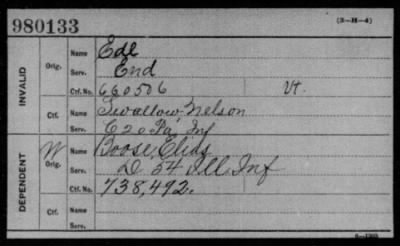 980133 (3-H-4)
INVALID
Orig. Name Ede
Serv. End
Ctf. No. 660506 Vt.
Ctf. Name Swallow, Nelson
Serv. C 20 Pa Inf
DEPENDENT
W Orig. Name Boose, Elids
Serv. D. 54 Ill Inf
Ctf. No. 738,492.
Ctf. Name
Serv.